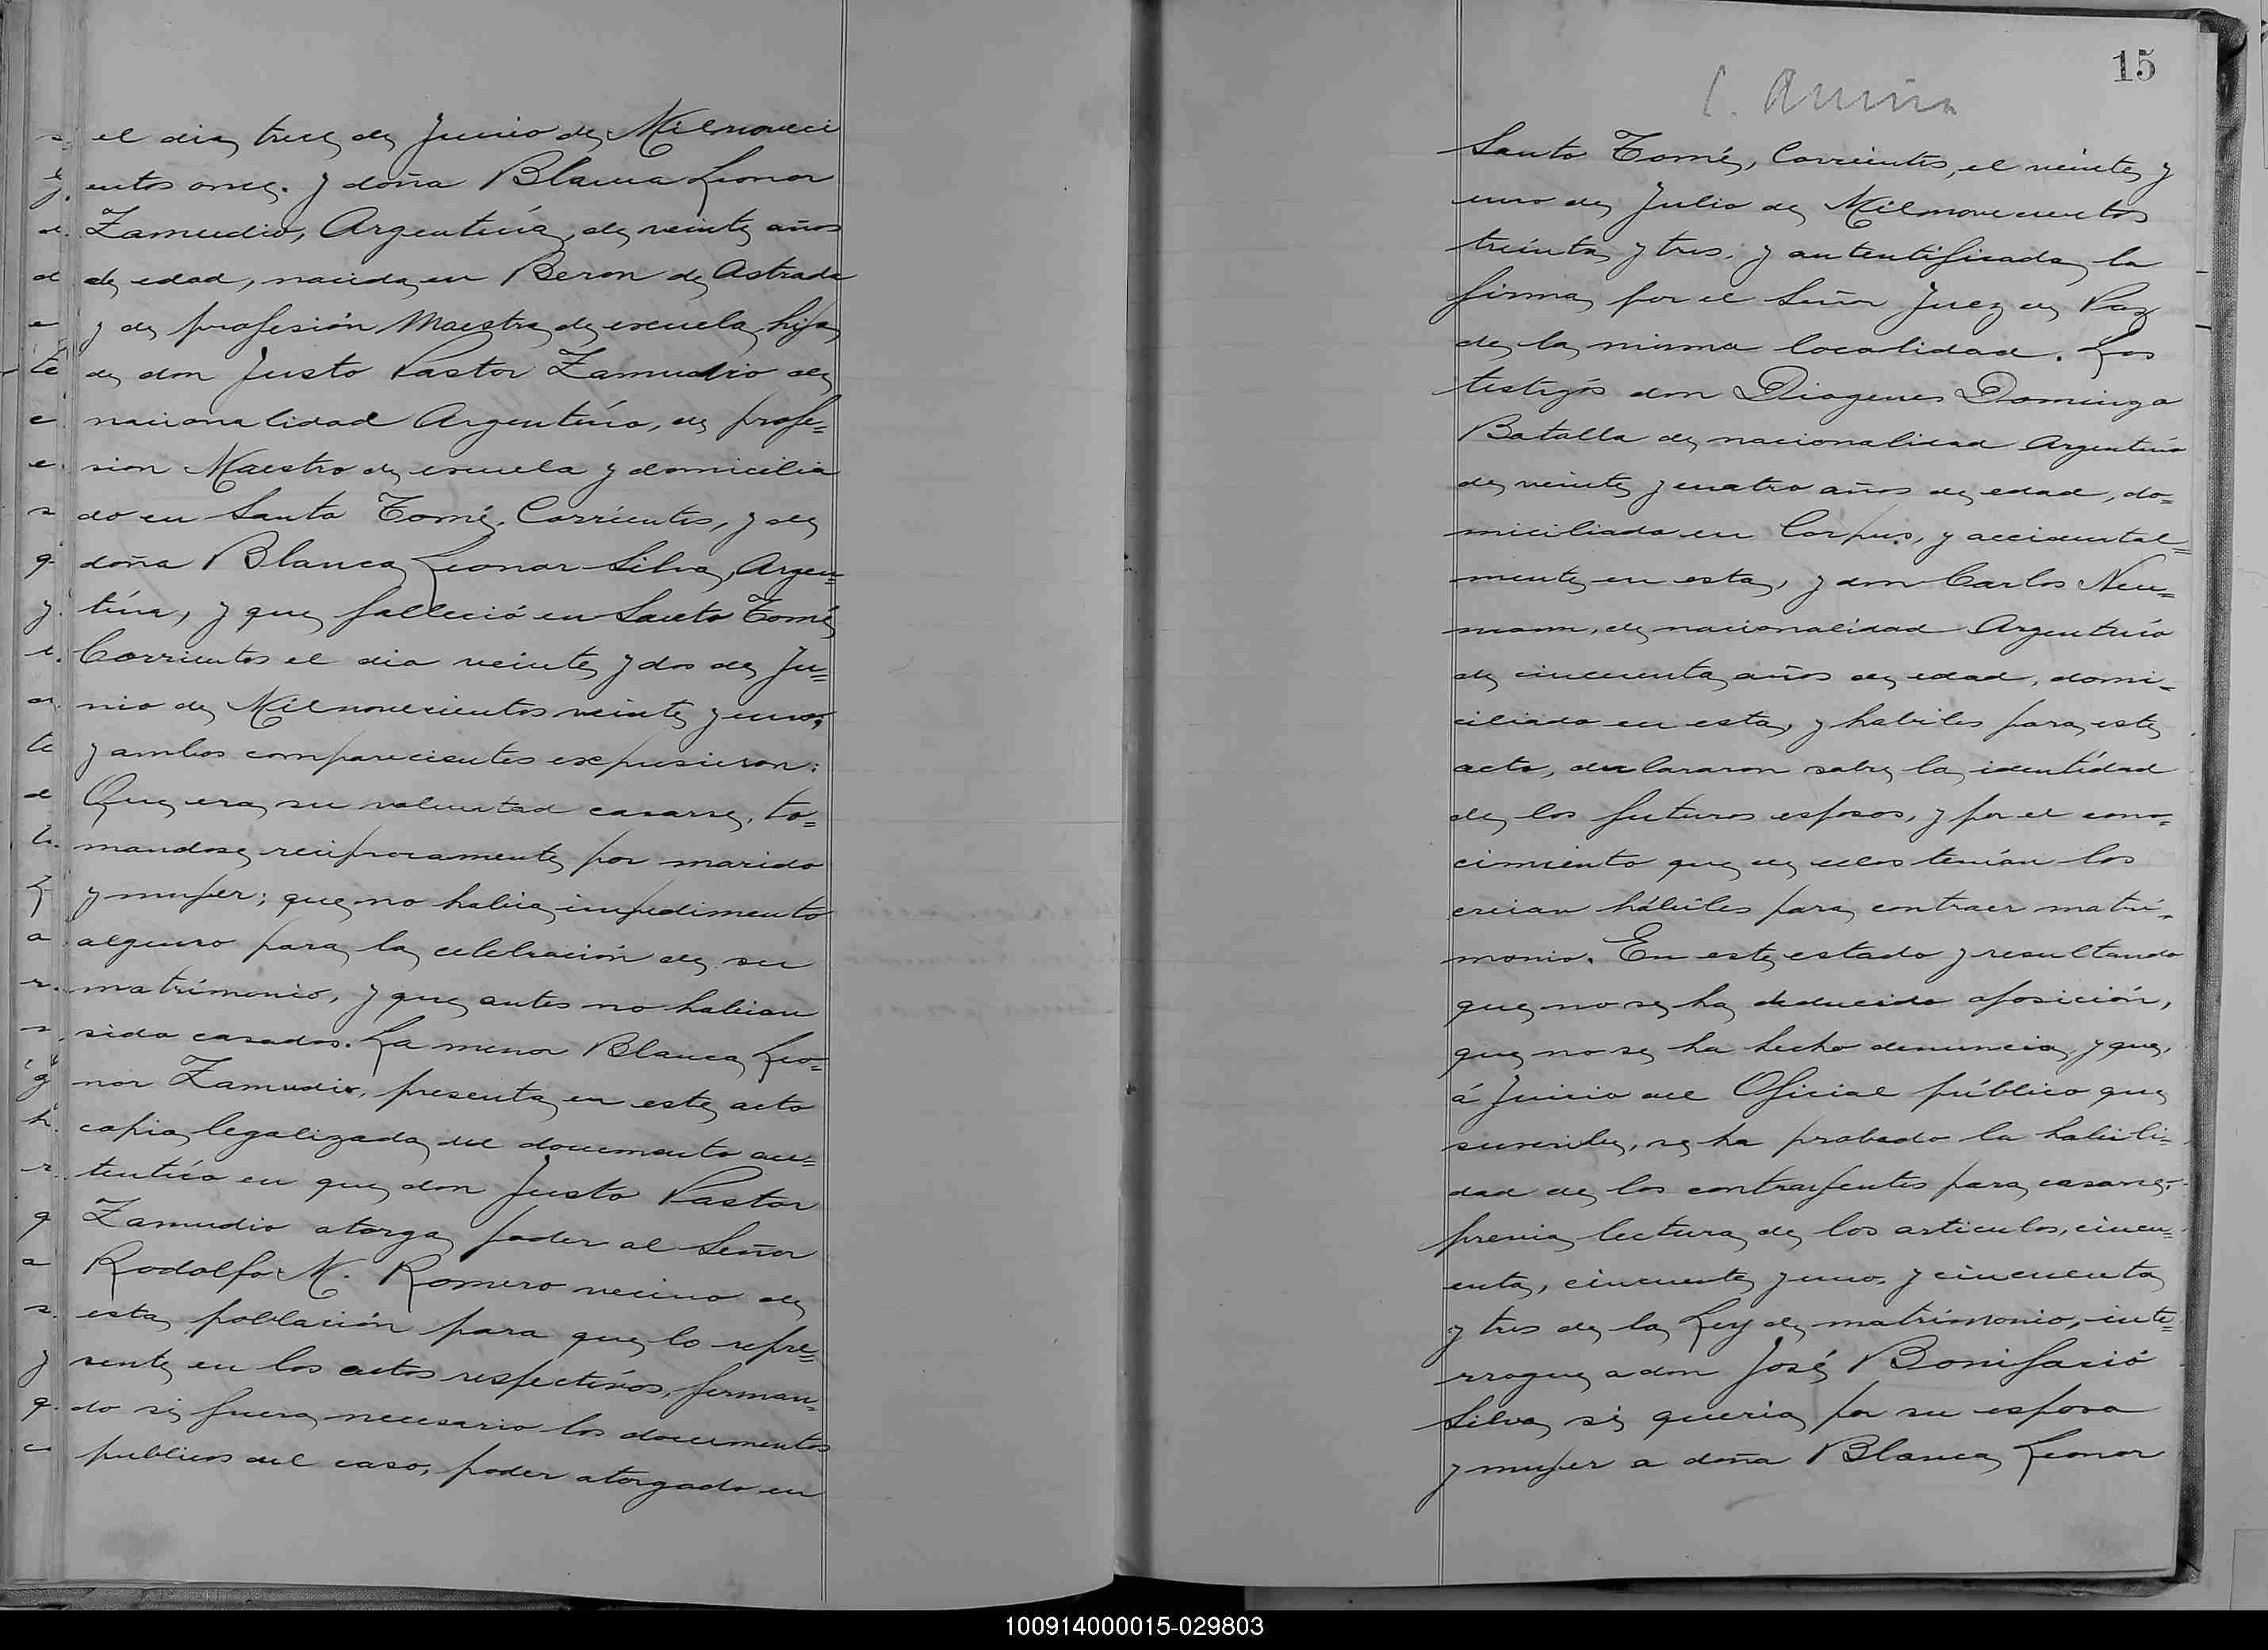 el dia trece de Junio de Milnoveci
entos once. y doña Blanca Leonor
Zamudio, Argentina, de veinte años
de edad, nacida en Beron de Astrada
y de profesión Maestra de escuela, hija
de don Justo Pastor Zamudio de
nacionalidad Argentino, de profe=
sion Maestro de escuela y domicilia
do en Santo Tomé. Corrientes, y de
doña Blanca Leonor Silva, Argen=
tina, y que falleció en Santo Tomé
Corrientes el dia veinte y dos de Ju=
nio de Milnovecientos veinte y uno;
y ambos comparecientes expusieron:
Que era su voluntad casarse, to=
mandose reciprocamente por marido
y mujer; que no habia impedimento
alguno para la celebración de su
matrimonio, y que antes no habian
sido casados. La menor Blanca Leo=
nor Zamudio, presenta en este acto
copia legalizada del documento au=
tentico en que don Justo Pastor
Zamudio otorga poder al Señor
Rodolfo M. Romero vecino de
esta población para que lo repre=
sente en los actos respectivos, firman=
do si fuera necesario los documentos
publicos del caso, poder otorgado en
15
Santo Tomé, Corrientes, el veinte y
uno de Julio de Milnovecientos
treinta y tres. y autentificada la
firma por el Señor Juez de Paz
de la misma localidad. Los
testigos don Diogenes Domingo
Batalla de nacionalidad Argentino
de veinte y cuatro años de edad, do=
miciliado en Corpus, y accidental=
mente en esta, y don Carlos Neu=
mann, de nacionalidad Argentino
de cincuenta años de edad, domi=
ciliado en esta, y habiles para este
acto, declararon sobre la identidad
de los futuros esposos, y por el cono=
cimiento que de ellos tenian los
creian hábiles para contraer matri=
monio. En este estado y resultando
que no se ha deducido oposición,
que no se ha hecho denuncia y que,
á Juicio del Oficial público que
suscribe, se ha probado la habili=
dad de los contrayentes para casarse,
previa lectura de los articulos, cincu=
enta, cincuenta y uno, y cincuenta
y tres de la Ley de matrimonio, inte=
rrogue a don José Bonifacio
Silva si queria por su esposa
y mujer a doña Blanca Leonor
100914000015-029803